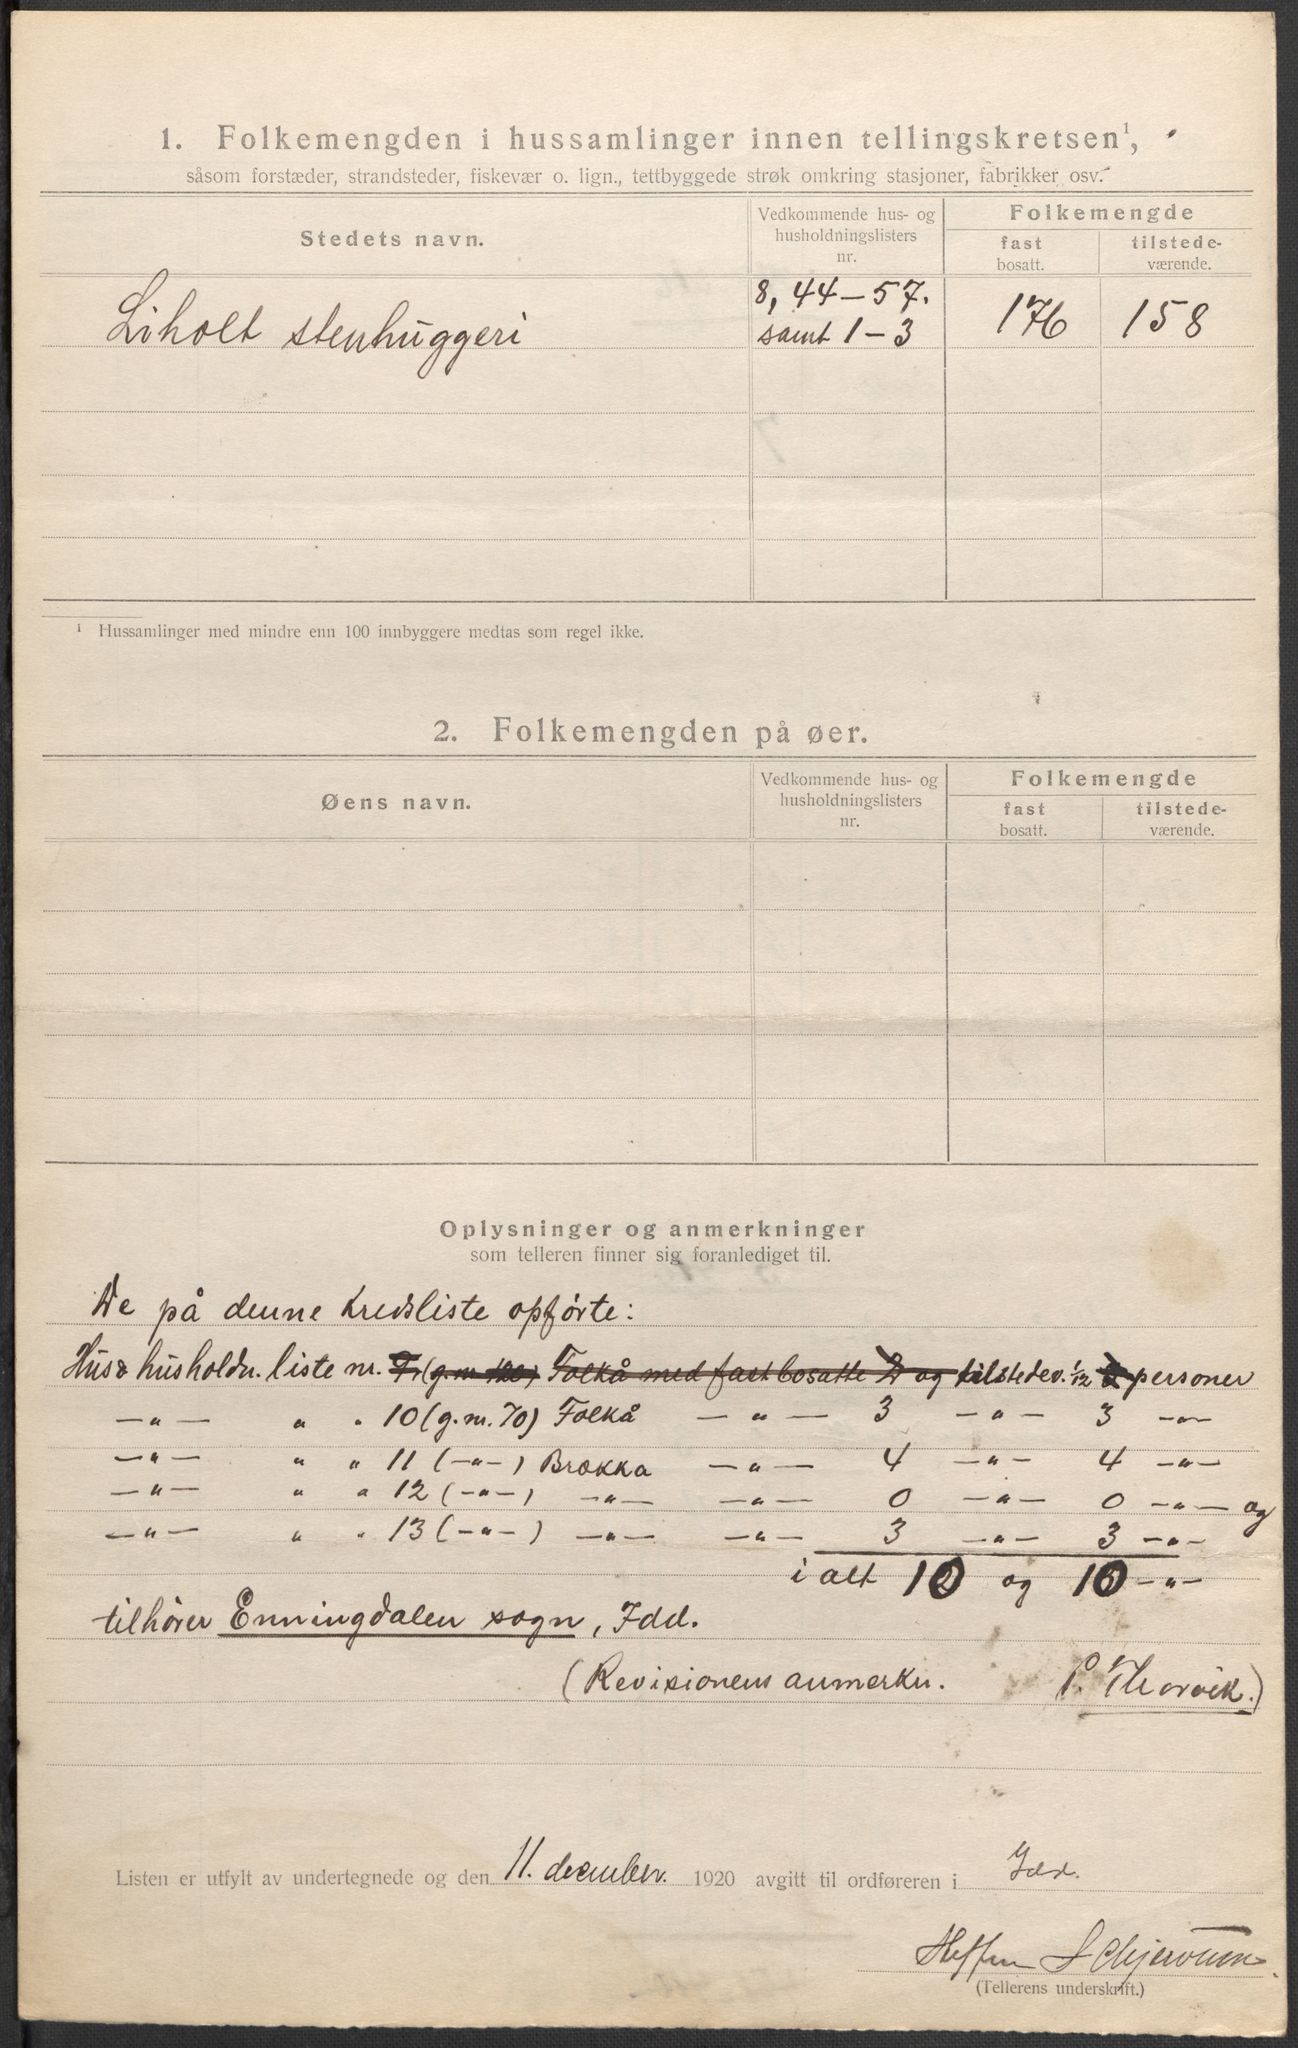 1. Folkemengden i hussamlinger innen tellingskretsen¹,
såsom forstæder, strandsteder, fiskevær o. lign., tettbyggede strøk omkring stasjoner, fabrikker osv.
Stedets navn. Vedkommende hus- og husholdningslisters nr. Folkemengde
fast bosatt. tilstede-værende.
8, 44-57.
Liholt stenhuggeri samt 1-3 176 158
¹ Hussamlinger med mindre enn 100 innbyggere medtas som regel ikke.
2. Folkemengden på øer.
Øens navn. Vedkommende hus- og husholdningslisters nr. Folkemengde
fast bosatt. tilstede-værende.
Oplysninger og anmerkninger
som telleren finner sig foranlediget til.
De på denne kredsliste opførte:
Hus & husholdn. liste nr. (g.nr. 120) Folkå med fast bosatte 2 og tilstedev. 1/12 2 personer
-"- " " 10 (g.nr. 70) Folkå -"- 3 -"- 3 -"-
-"- " " 11 (-"-) Brokka -"- 4 -"- 4 -"-
-"- " " 12 (-"-) -"- -"- 0 -"- 0 -"- og
-"- " " 13 (-"-) -"- -"- 3 -"- 3 -"-
i alt 10 og 10 -"-
tilhører Enningdalen sogn, Idd.
(Revisionens anmerkn. P. Thorvik.)
Listen er utfylt av undertegnede og den 11. december. 1920 avgitt til ordføreren i Idd.
Steffen
(Tellerens underskrift.)